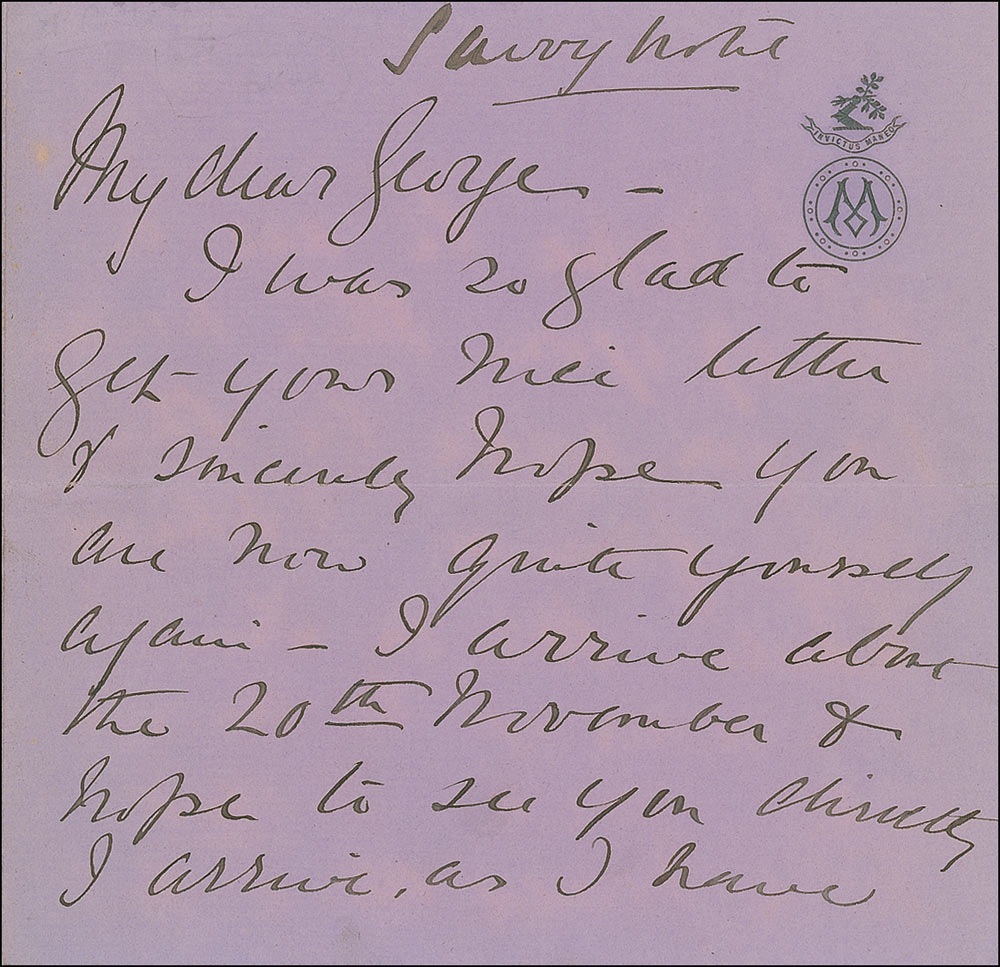 Savoy Hotel
My dear George –
INVICTUS MANEO
M
I was so glad to
get your nice letter
& sincerely hope you
are now quite yourself
again – I arrive about
the 20th November &
hope to see you directly
I arrive, as I have